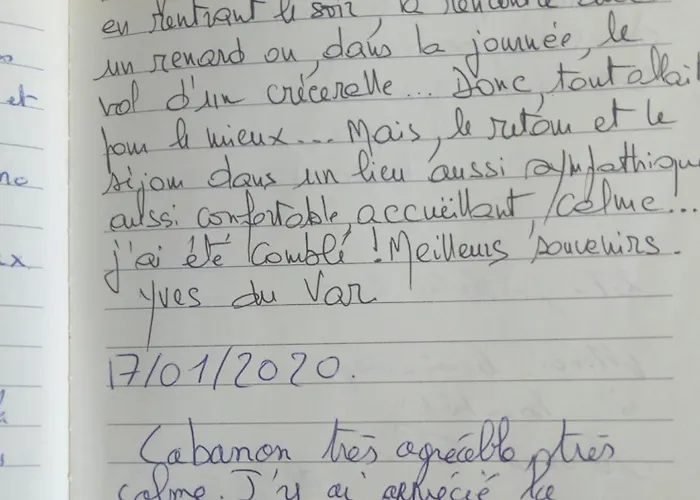 en rentrant le soir, la rencontre
un renard ou, dans la journée, le
vol d'un crécerelle... Donc, tout allait
pour le mieux... Mais, le retour et le
séjour dans un lieu aussi sympathique
aussi confortable, accueillant, calme...
j'ai été comblé ! Meilleurs souvenirs.
Yves du Var
17/01/2020.
Cabanon très agréable, très
calme. J'y ai apprécié le
et